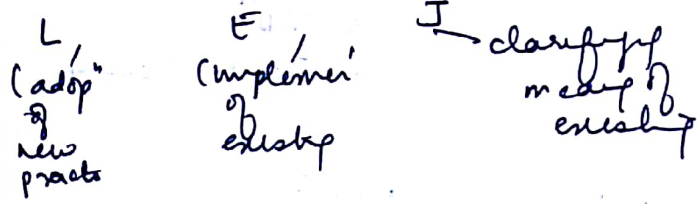 L
(adopⁿ
of
new
practs
E
(implemen
of
existg
J
clarifying
meang of
existing